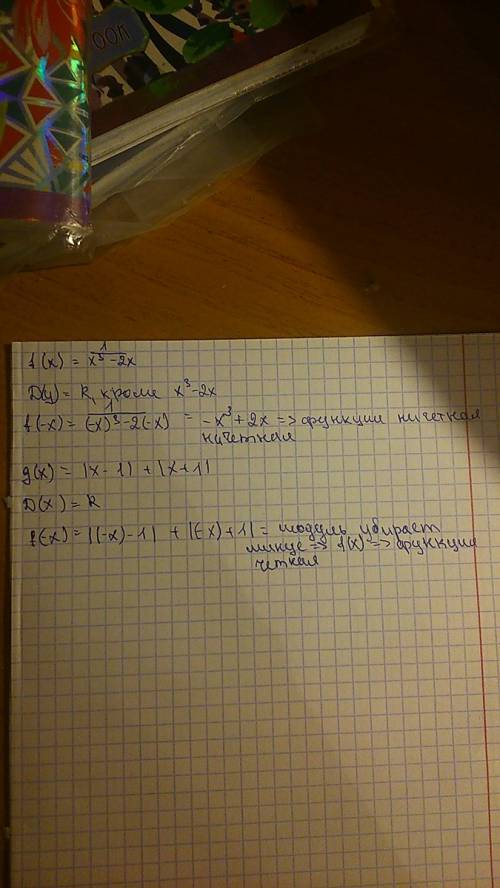 ООЛ
f(x) = 1/(x³-2x)
D(y) = R, кроме x³-2x
f(-x) = 1/((-x)³-2(-x)) = -x³+2x => функции ни четная
ни четная
g(x) = |x-1| + |x+1|
D(x) = R
f(-x) = |(-x)-1| + |(-x)+1| = модуль убирает
минус => f(x) => функция
четная